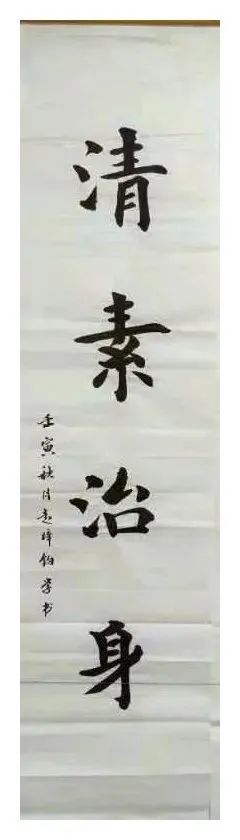 清素治身
壬寅秋月赵峰伯学书